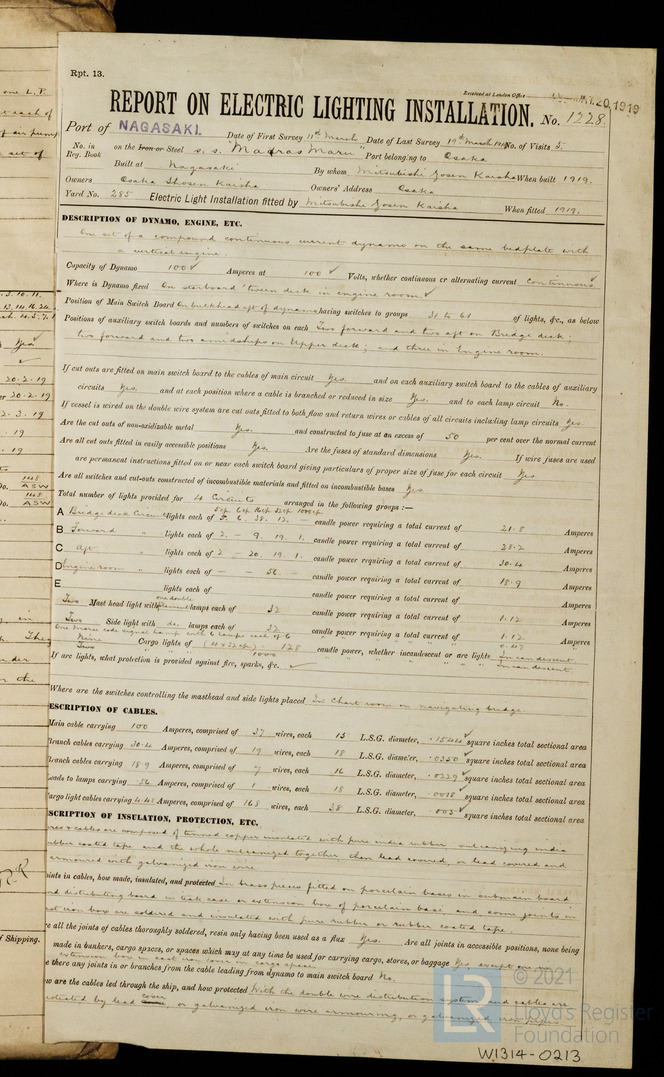 Rpt. 13.
Received at London Office
20, 1919
REPORT ON ELECTRIC LIGHTING INSTALLATION. No. 1228
Port of NAGASAKI. Date of First Survey 11th March Date of Last Survey 19th March 1919 No. of Visits 5.
No. in Reg. Book on the Iron or Steel s.s. "Madras Maru" Port belonging to Osaka
Built at Nagasaki By whom Mitsubishi Zosen Kaisha When built 1919.
Owners Osaka Shosen Kaisha Owners' Address Osaka
Yard No. 285 Electric Light Installation fitted by Mitsubishi Zosen Kaisha When fitted 1919.
DESCRIPTION OF DYNAMO, ENGINE, ETC.
One set of a compound continuous current dynamo on the same bedplate with
a vertical engine.
Capacity of Dynamo 100 Amperes at 100 Volts, whether continuous or alternating current Continuous
Where is Dynamo fixed On starboard 'tween deck in engine room
Position of Main Switch Board On bulkhead aft of dynamo having switches to groups of lights, &c., as below
Positions of auxiliary switch boards and numbers of switches on each Two forward and two aft on Bridge deck;
two forward and two amidships on Upper deck; and three in Engine room.
If cut outs are fitted on main switch board to the cables of main circuit Yes. and on each auxiliary switch board to the cables of auxiliary
circuits Yes. and at each position where a cable is branched or reduced in size Yes. and to each lamp circuit No.
If vessel is wired on the double wire system are cut outs fitted to both flow and return wires or cables of all circuits including lamp circuits Yes.
Are the cut outs of non-oxidizable metal Yes. and constructed to fuse at an excess of 50 per cent over the normal current
Are all cut outs fitted in easily accessible positions Yes. Are the fuses of standard dimensions Yes. If wire fuses are used
are permanent instructions fitted on or near each switch board giving particulars of proper size of fuse for each circuit Yes
Are all switches and cut-outs constructed of incombustible materials and fitted on incombustible bases Yes
Total number of lights provided for 4 Circuits arranged in the following groups :—
A Bridge deck Circuit lights each of 5. 6. 38. 12. candle power requiring a total current of 21.8 Amperes
B Forward " lights each of 2. - 9. 19. 1. candle power requiring a total current of 28.2 Amperes
C Aft " lights each of 2 - 20. 19. 1. candle power requiring a total current of 30.4 Amperes
D Engine room " lights each of - - 56 - candle power requiring a total current of 18.9 Amperes
E lights each of candle power requiring a total current of Amperes
Two Mast head light with one double filament lamps each of 32 candle power requiring a total current of 1.12 Amperes
Two Side light with do. lamps each of 32 candle power requiring a total current of 1.12 Amperes
One morse code signal lamp with 6 lamps each of 6 " " " 0.47
Nine Cargo lights of (4 x 32 cp) 128 candle power, whether incandescent or arc lights Incandescent.
Two " 1000 " " " Incandescent
If arc lights, what protection is provided against fire, sparks, &c.
Where are the switches controlling the masthead and side lights placed In Chart room on navigating bridge.
ESCRIPTION OF CABLES.
Main cable carrying 100 Amperes, comprised of 37 wires, each 15 L.S.G. diameter, .1544 square inches total sectional area
Branch cables carrying 30.4 Amperes, comprised of 19 wires, each 18 L.S.G. diameter, .0350 square inches total sectional area
Branch cables carrying 18.9 Amperes, comprised of 7 wires, each 16 L.S.G. diameter, .0229 square inches total sectional area
Leads to lamps carrying .56 Amperes, comprised of 1 wires, each 18 L.S.G. diameter, .0018 square inches total sectional area
Cargo light cables carrying 4.48 Amperes, comprised of 168 wires, each 38 L.S.G. diameter, .005 square inches total sectional area
SCRIPTION OF INSULATION, PROTECTION, ETC.
& cables are composed of tinned copper insulated with pure india rubber vulcanizing india
rubber coated tape and the whole vulcanized together then lead covered, or lead covered and
armoured with galvanized iron wire
Joints in cables, how made, insulated, and protected In brass pieces fitted on porcelain bases in submain board
and distributing board in teak case or extension box of porcelain base, and some joints in
cast iron box are soldered and insulated with pure rubber or rubber coated tape.
re all the joints of cables thoroughly soldered, resin only having been used as a flux Yes. Are all joints in accessible positions, none being
made in bunkers, cargo spaces, or spaces which may at any time be used for carrying cargo, stores, or baggage Yes except
extension box in cast iron cover in cargo space
e there any joints in or branches from the cable leading from dynamo to main switch board No.
ow are the cables led through the ship, and how protected With the double wire distribution system and cables are
protected by lead cover or galvanized iron wire armouring, or galvanized iron pipes
© 2021
LR
Lloyd's Register
Foundation
W1314-0213
of Shipping.
20.2.19
20.2.19
2.3.19
ASW
ASW